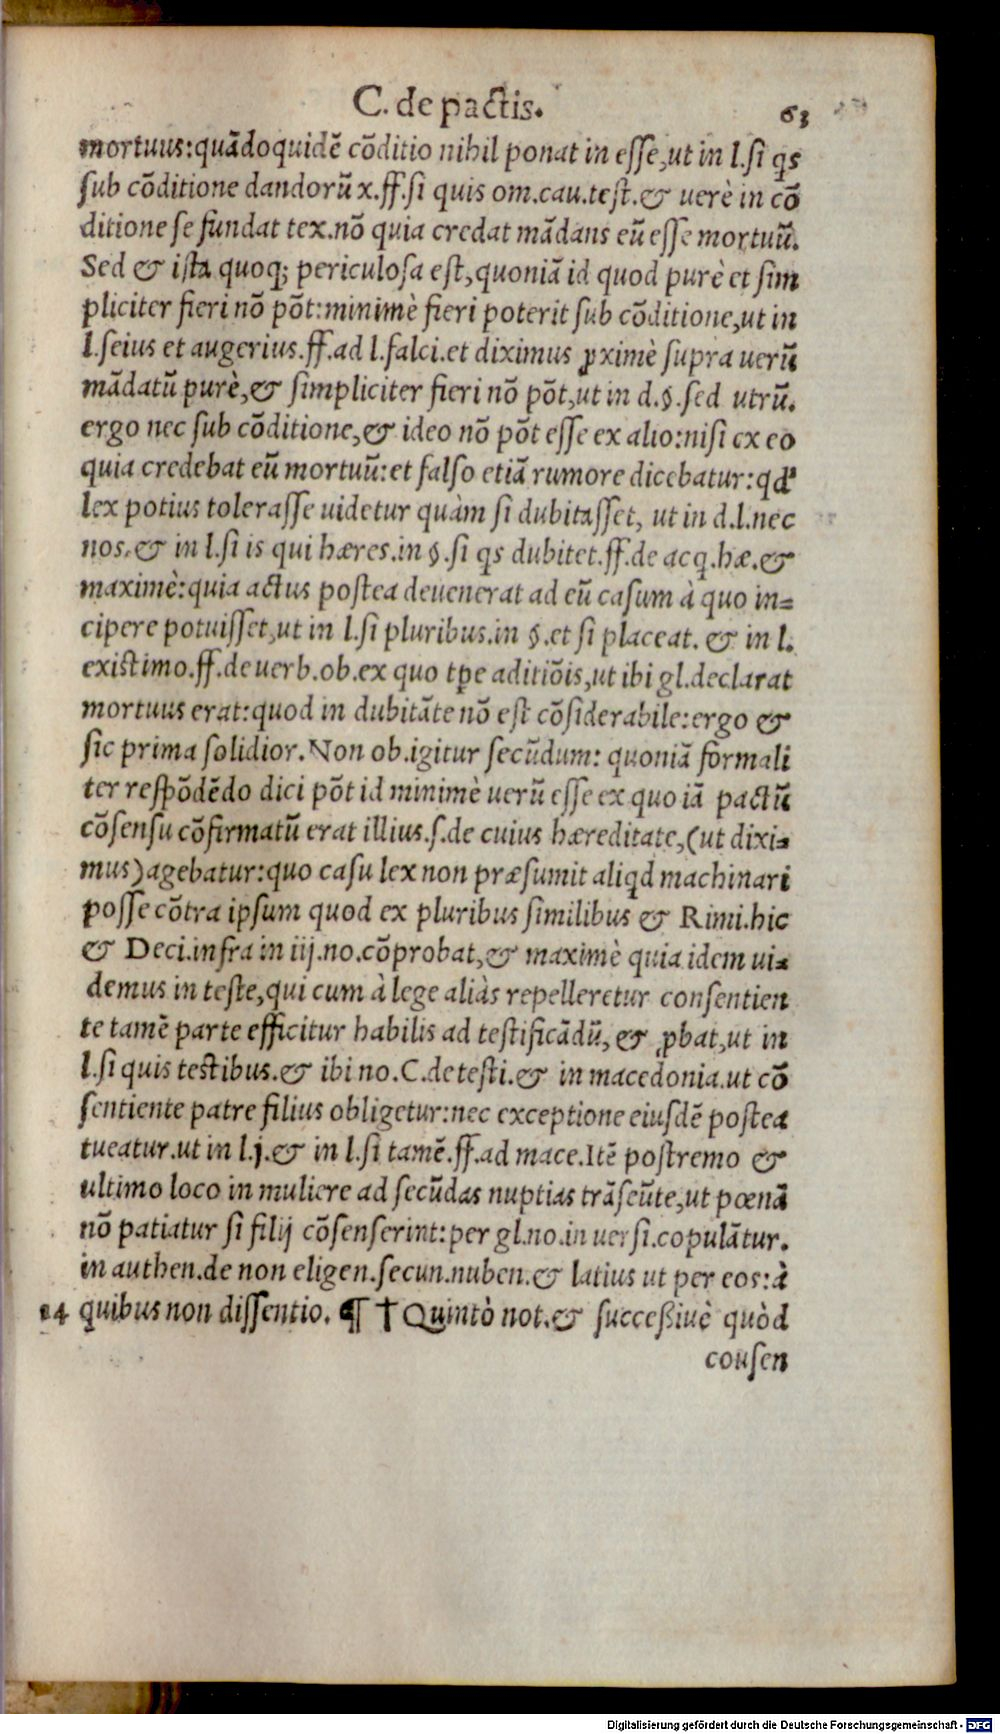 C. de pactis. 63
mortuus: quãdoquidẽ cõditio nihil ponat in esse, ut in l. si q̃s
sub cõditione dandorũ x. ff. si quis om. cau. test. & uerè in cõ
ditione se fundat tex. nõ quia credat mãdans eũ esse mortuũ.
Sed & ista quoq; periculosa est, quoniã id quod purè et sim
pliciter fieri nõ põt: minimè fieri poterit sub cõditione, ut in
l. seius et augerius. ff. ad l. falci. et diximus ꝓximè supra uerũ
mãdatũ purè, & simpliciter fieri nõ põt, ut in d. §. sed utrũ.
ergo nec sub cõditione, & ideo nõ põt esse ex alio: nisi ex eo
quia credebat eũ mortuũ: et falso etiã rumore dicebatur: qđ
lex potius tolerasse uidetur quàm si dubitasset, ut in d. l. nec
nos. & in l. si is qui hæres. in §. si q̃s dubitet. ff. de acq. hæ. &
maximè: quia actus postea deuenerat ad eũ casum à quo in=
cipere potuisset, ut in l. si pluribus. in §. et si placeat. & in l.
existimo. ff. de uerb. ob. ex quo tp̃e aditiõis, ut ibi gl. declarat
mortuus erat: quod in dubitãte nõ est cõsiderabile: ergo &
sic prima solidior. Non ob. igitur secũdum: quoniã formali
ter respõdẽdo dici põt id minimè uerũ esse ex quo iã pactũ
cõsensu cõfirmatũ erat illius. s. de cuius hæreditate, (ut dixi=
mus) agebatur: quo casu lex non præsumit aliqd machinari
posse cõtra ipsum quod ex pluribus similibus & Rimi. hic
& Deci. infra in iij. no. cõprobat, & maximè quia idem ui=
demus in teste, qui cum à lege aliàs repelleretur consentien
te tamẽ parte efficitur habilis ad testificãdũ, & ꝓbat, ut in
l. si quis testibus. & ibi no. C. de testi. & in macedonia. ut cõ
sentiente patre filius obligetur: nec exceptione eiusdẽ postea
tueatur. ut in l. j. & in l. si tamẽ. ff. ad mace. Itẽ postremo &
ultimo loco in muliere ad secũdas nuptias trãseũte, ut pœnã
nõ patiatur si filij cõsenserint: per gl. no. in uersi. copulãtur.
in authen. de non eligen. secun. nuben. & latius ut per eos: à
24 quibus non dissentio. ¶ † Quintò not. & successiuè quòd
cousen
Digitalisierung gefördert durch die Deutsche Forschungsgemeinschaft - DFG